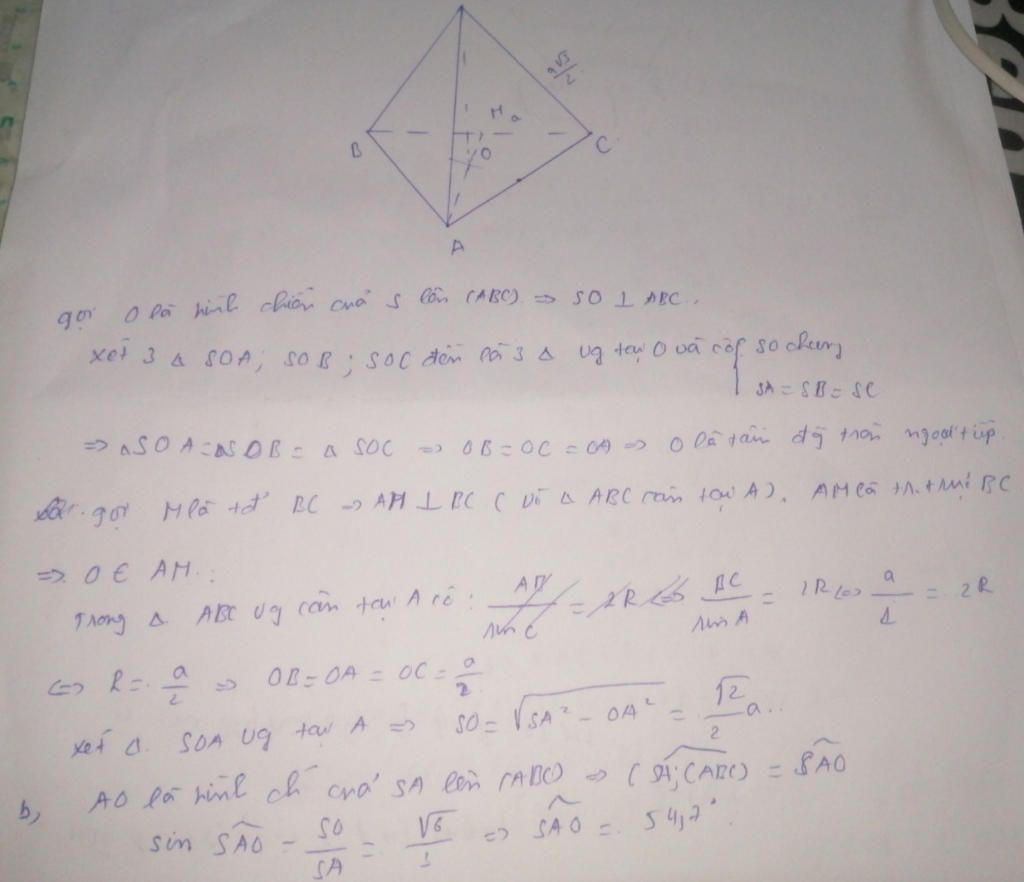 a√3/2
M a
B
O
C
A
gọi O là hình chiếu của S lên (ABC) => SO ⊥ ABC.
xét 3 Δ SOA; SOB; SOC đều là 3 Δ vg tại O và có { SO chung
SA = SB = SC
=> ΔSOA = ΔSOB = Δ SOC => OB = OC = OA => O là tâm đg tròn ngoại tiếp.
gọi M là tđ BC => AM ⊥ BC ( vì Δ ABC cân tại A). AM là tr.trực BC
=> O ∈ AM.:
Trong Δ ABC vg cân tại A có : BC/sin A = 2R <=> a/1 = 2R
<=> R = a/2 => OB = OA = OC = a/2
xét Δ. SOA vg tại A => SO = √(SA² - OA²) = √2/2 a..
b, AO là hình ch' của SA lên (ABC) => (SA; (ABC) = SAO
sin SAO = SO/SA = √6/3 => SAO = 54,7°.